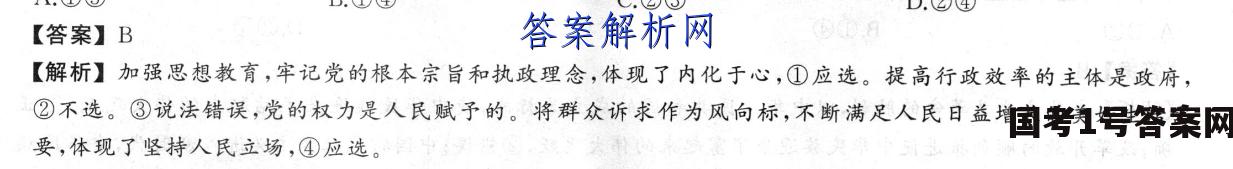 A.①③ B.①④ C.②③ D.②④
【答案】B
答案解析网
【解析】加强思想教育,牢记党的根本宗旨和执政理念,体现了内化于心,①应选。提高行政效率的主体是政府,
②不选。③说法错误,党的权力是人民赋予的。将群众诉求作为风向标,不断满足人民日益增
国考1号答案网
要,体现了坚持人民立场,④应选。